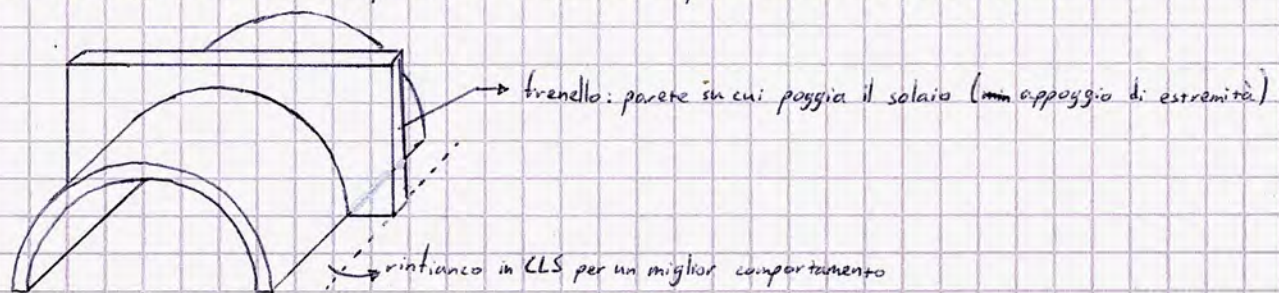 frenello: parete su cui poggia il solaio (appoggio di estremità)
rinfianco in CLS per un miglior comportamento